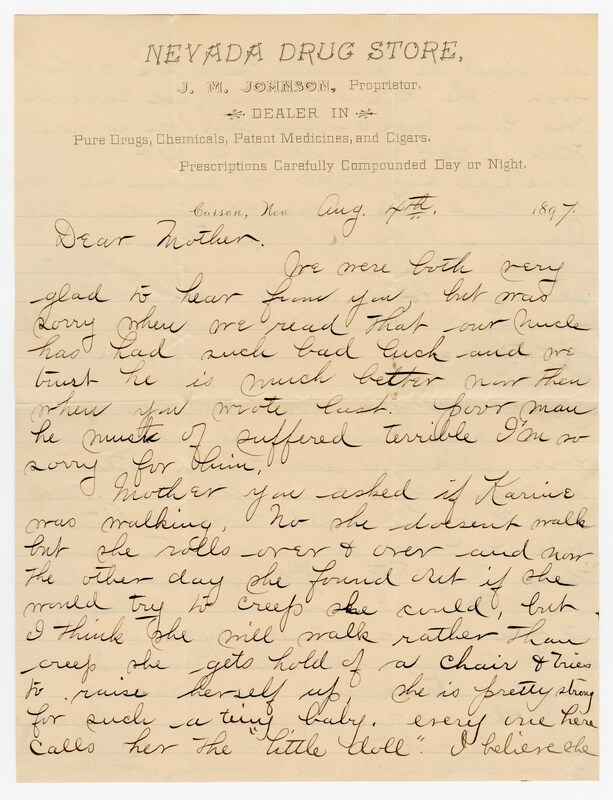 NEVADA DRUG STORE,
J. M. JOHNSON, Proprietor.
DEALER IN
Pure Drugs, Chemicals, Patent Medicines, and Cigars.
Prescriptions Carefully Compounded Day or Night.
Carson, Nev Aug. 4th. 1897.
Dear Mother.
We were both very
glad to hear from you, but was
sorry when we read that our Uncle
has had such bad luck and we
trust he is much better now then
when you wrote last. poor man
he must of suffered terrible I'm so
sorry for him,
Mother you asked if Karine
was walking, No she doesent walk
but she rolls over & over and now
the other day she found out if she
would try to creep she could, but
I think she will walk rather than
creep she gets hold of a chair & tries
to raise herself up, she is pretty strong
for such a tiny baby. every one here
calls her the "little doll". I believe she